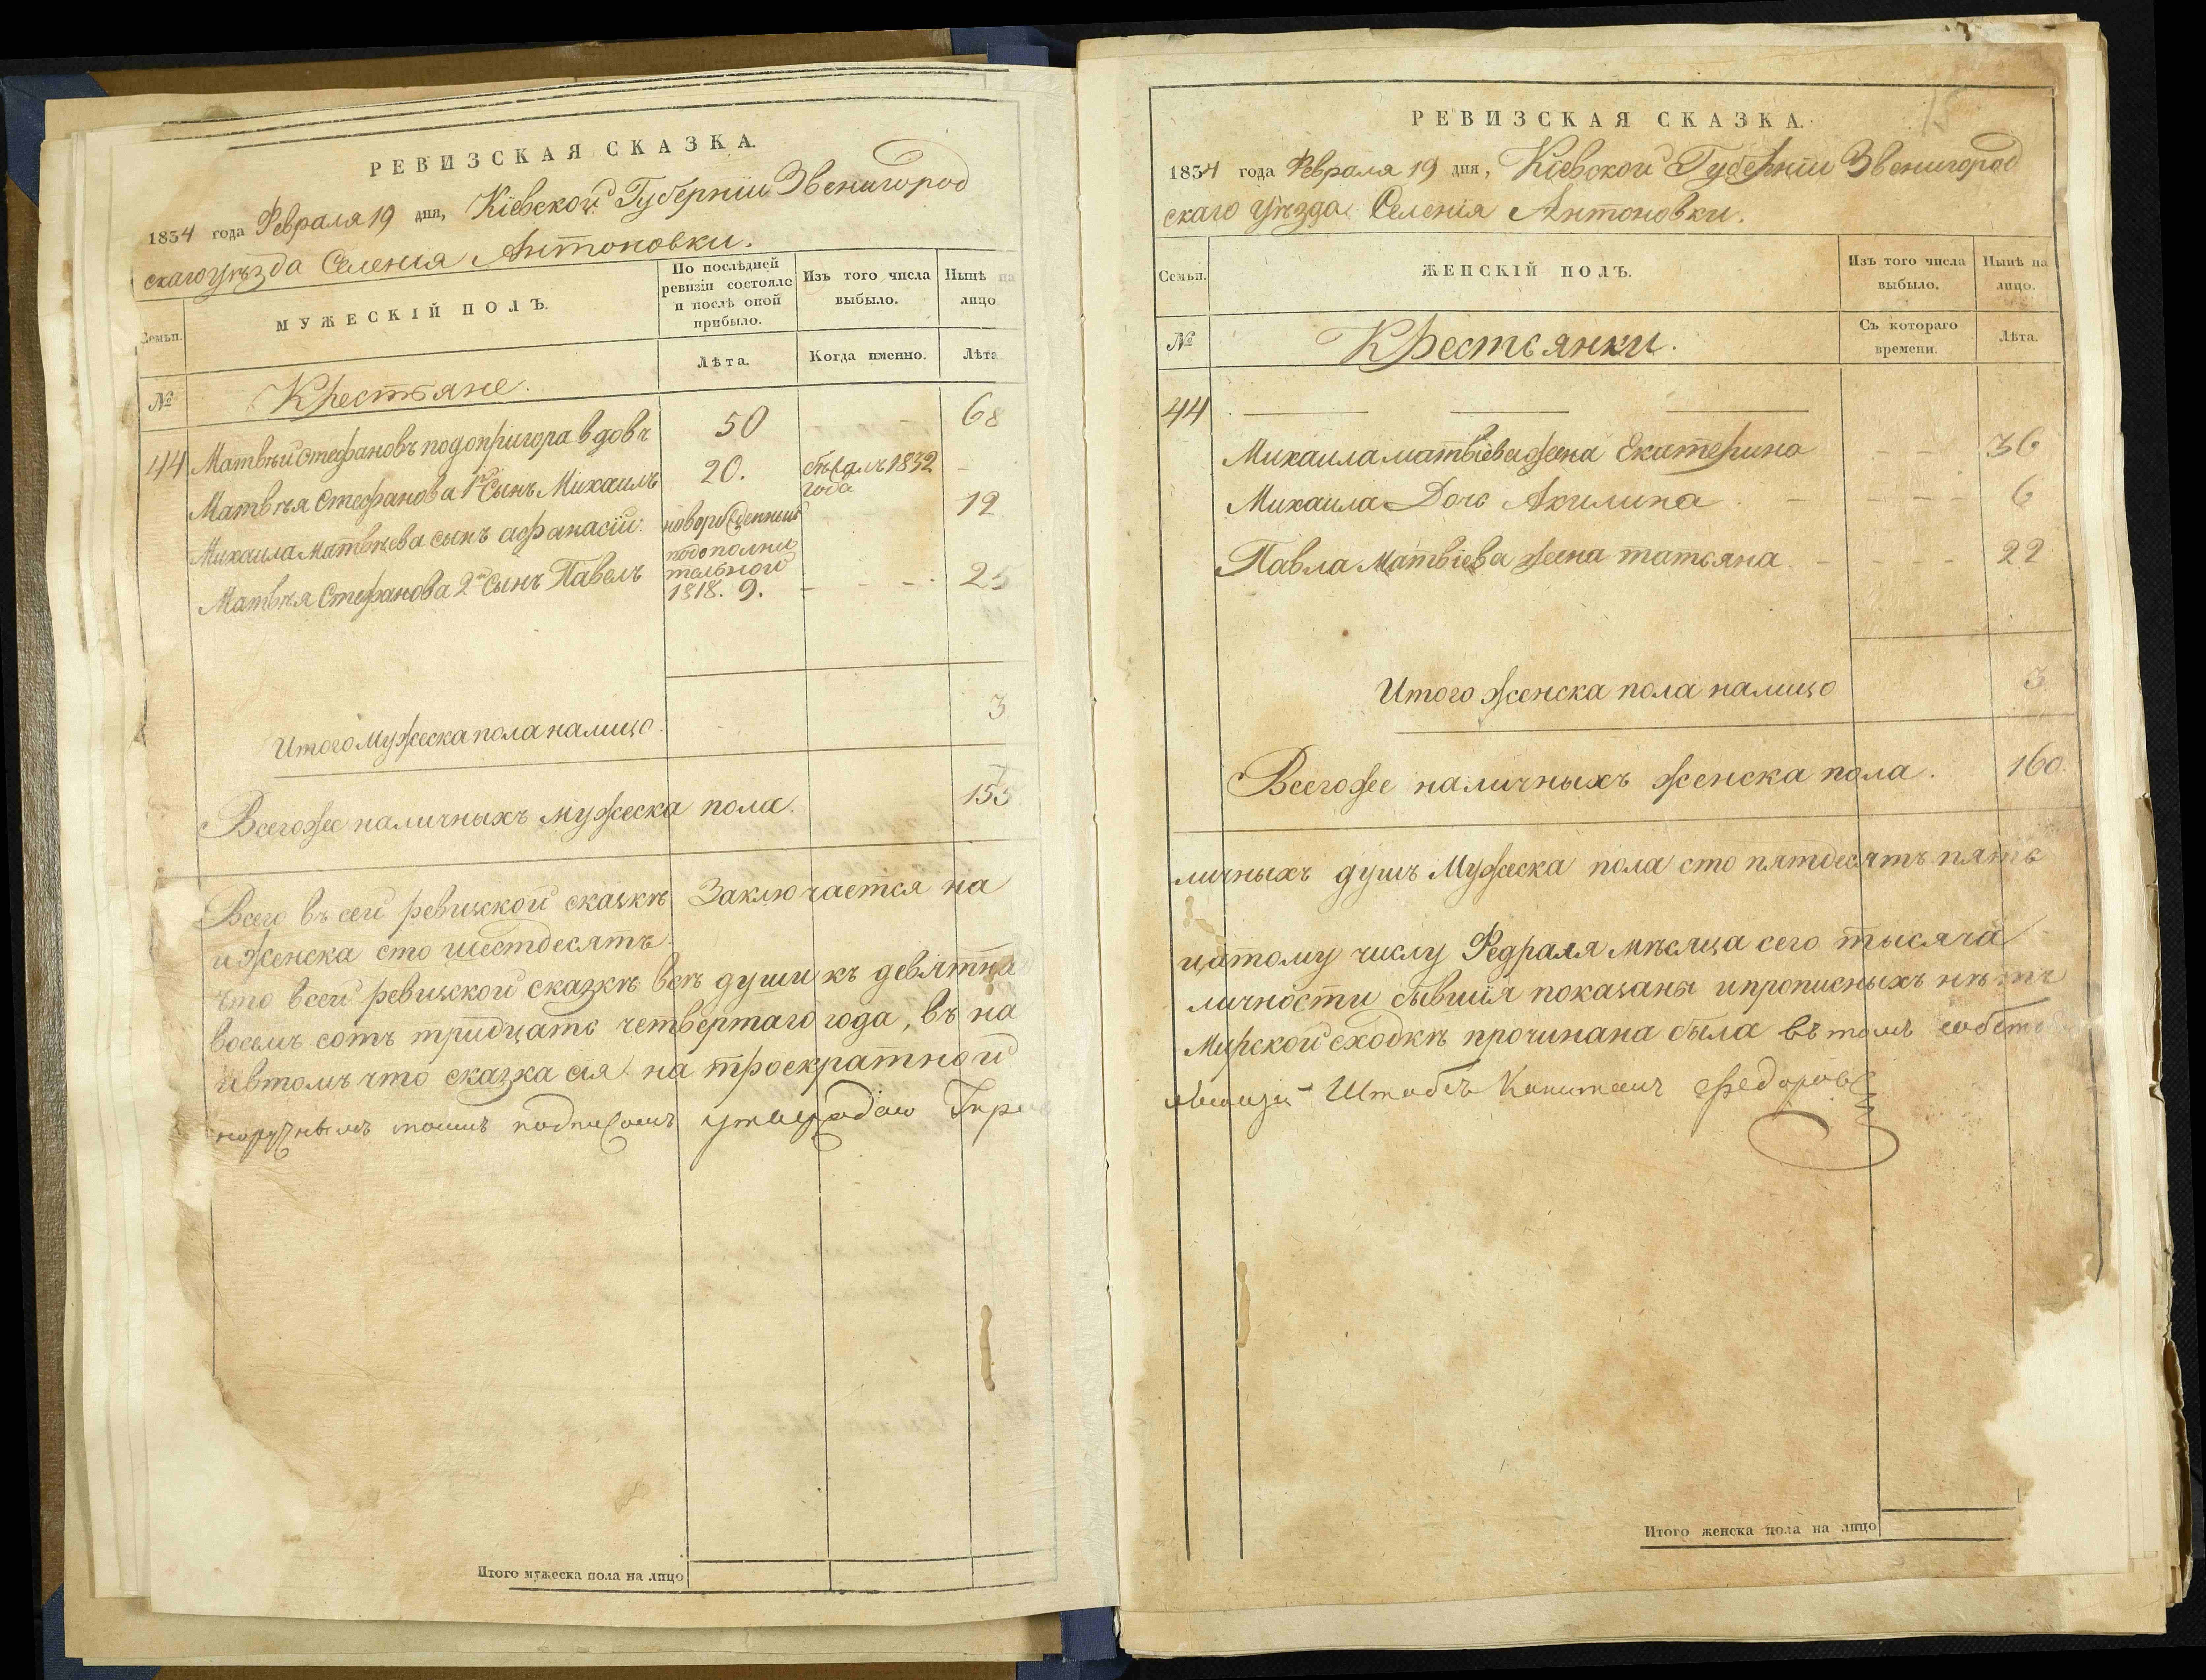 РЕВИЗСКАЯ СКАЗКА.
1834 года Февраля 19 дня, Кіевской Губерніи Звенигород
скаго уѣзда Селенія Антоновки.
Семьи.
МУЖЕСКІЙ ПОЛЪ.
По послѣдней ревизіи состояло и послѣ оной прибыло.
Изъ того числа выбыло.
Нынѣ на лицо
№
Крестьяне.
Лѣта.
Когда именно.
Лѣта
44 Матвѣй Стефановъ подопригора вдовъ 50 68
Матвѣя Стефанова 1й Сынъ Михаилъ 20. бѣжалъ 1832 года
Михаила Матвѣева сынъ афанасій. новорожденный 12
Матвѣя Стефанова 2й Сынъ Павелъ подополнительной 1818. 9. 25
Итого Мужеска пола налицо. 3
Всегоже наличныхъ мужеска пола. 155
Всего въ сей ревизской сказкѣ Заключается на
и Женска сто шестдесятъ.
что всей ревизской сказкѣ всѣ души къ девятна
восемь сотъ тридцать четвертаго года, въ на
ивтомъ что сказка сія на троекратной
подписомъ
РЕВИЗСКАЯ СКАЗКА.
1834 года Февраля 19 дня, Кіевской Губерніи Звенигород
скаго уѣзда Селенія Антоновки.
Семьи.
ЖЕНСКІЙ ПОЛЪ.
Изъ того числа выбыло.
Нынѣ на лицо.
№
Крестьянки.
Съ котораго времени.
Лѣта.
44
Михаила матвіева жена Екатерина 36
Михаила Дочь Акилина 6
Павла Матвіева жена татьяна 22
Итого женска пола налицо 3
Всегоже наличныхъ женска пола. 160.
личныхъ душъ Мужеска пола сто пятдесятъ пять
цатому числу Февраля мѣсяца сего тысяча
личности бывшія показаны ипрописныхъ нѣтъ
Мирской сходкѣ прочинана была въ томъ собств
Штабсъ Капитанъ Федоровъ
Итого мужеска пола на лицо
Итого женска пола на лицо